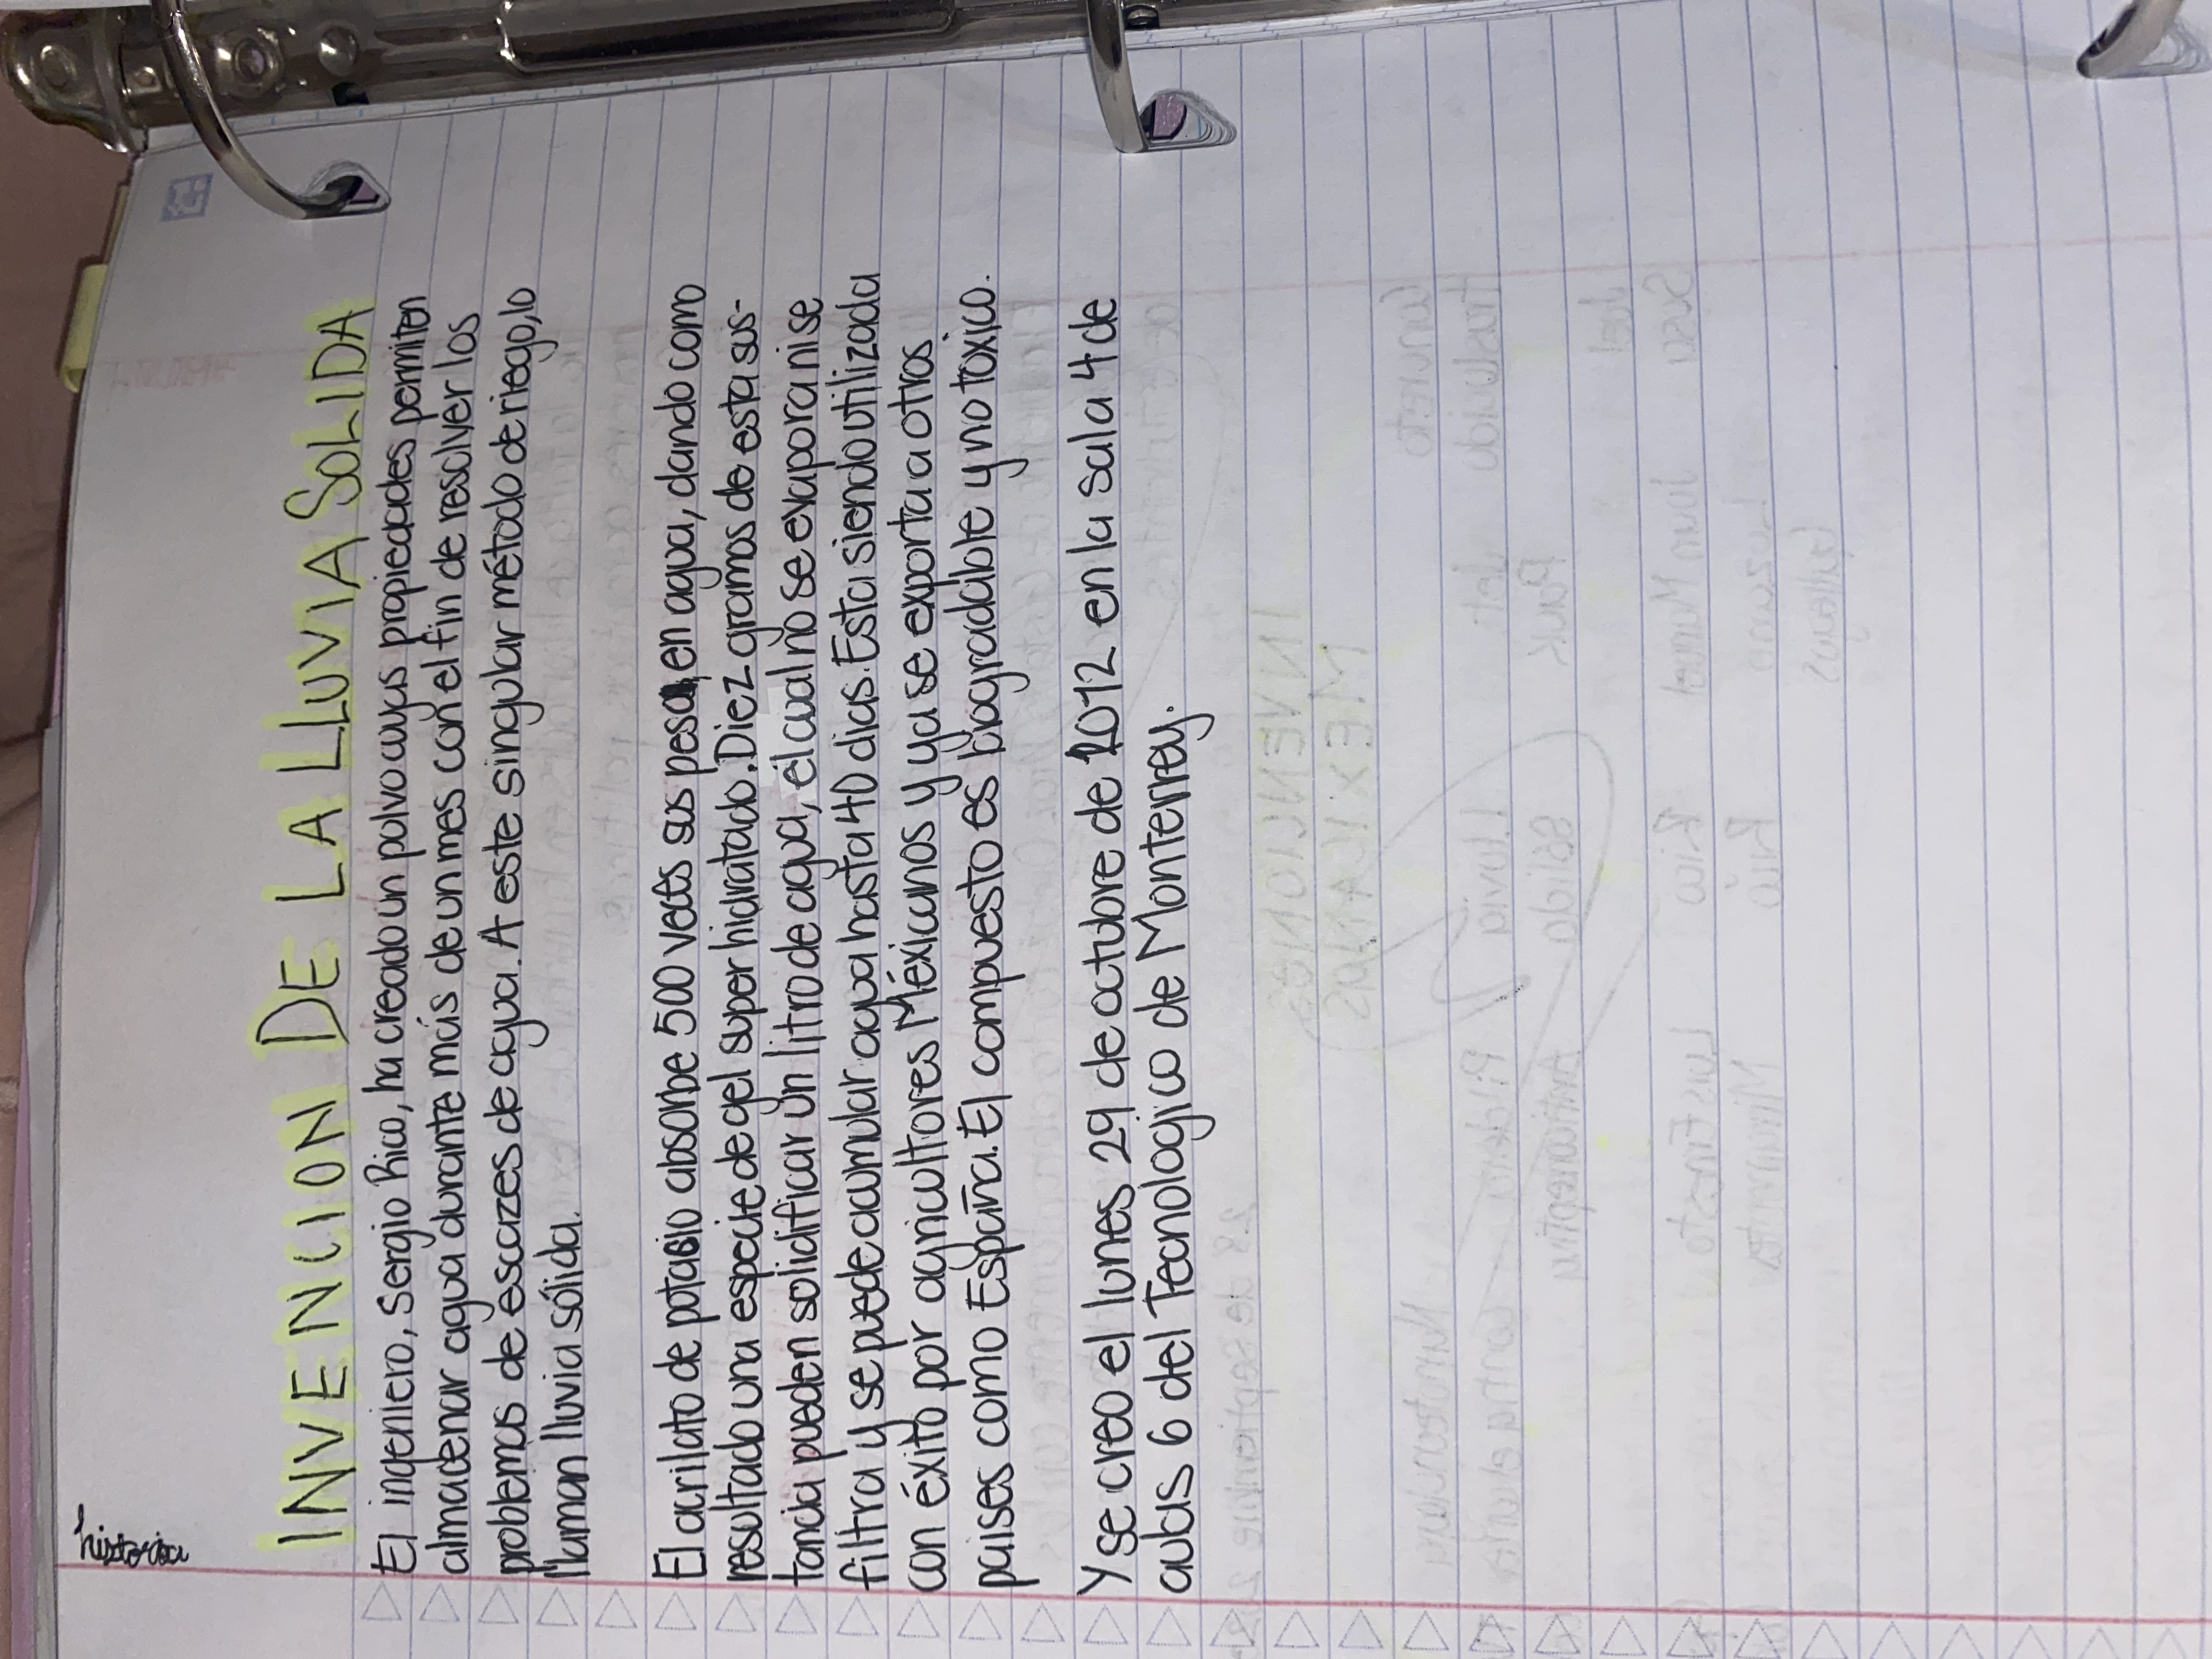 historia
INVENCION DE LA LLUVIA SOLIDA
El ingeniero, Sergio Rico, ha creado un polvo cuyas propiedades permiten
almacenar agua durante más de un mes con el fin de resolver los
problemas de escazes de agua. A este singular método de riego, lo
llaman lluvia sólida.
El acrilato de potasio absorbe 500 veces sus peso, en agua, dando como
resultado una especie de gel super hidratado. Diez gramos de esta sus-
tancia pueden solidificar un litro de agua, el cual no se evapora ni se
filtra y se puede acumular agua hasta 40 dias. Esta siendo utilizada
con éxito por agricultores Méxicanos y ya se exporta a otros
paises como España. El compuesto es biogradable y no toxico.
Y se creo el lunes 29 de octubre de 2012 en la sala 4 de
aulas 6 del Tecnologico de Monterrey.